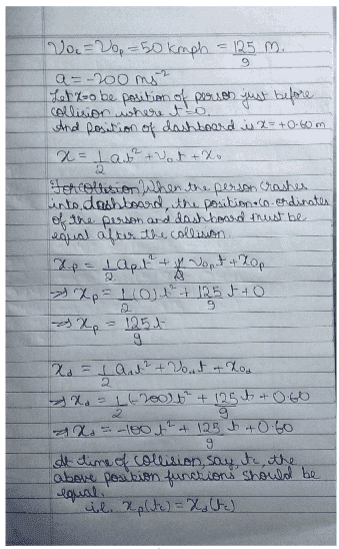 V₀c = V₀p = 50 kmph = 125/9 m.
a = -200 ms⁻²
Let x=0 be position of person just before
collision where t=0.
And position of dashboard is x = +0.60m
x = 1/2 at² + v₀t + x₀
When the person crashes
into dashboard, the position co-ordinates
of the person and dashboard must be
equal after the collision.
xp = 1/2 ap t² + v₀p t + x₀p
⇒ xp = 1/2 (0)t² + 125/9 t + 0
⇒ xp = 125/9 t
xd = 1/2 ad t² + v₀d t + x₀d
⇒ xd = 1/2 (-200)t² + 125/9 t + 0.60
⇒ xd = -100t² + 125/9 t + 0.60
At time of collision, say, tc, the
above position functions should be
equal.
i.e. xp(tc) = xd(tc)